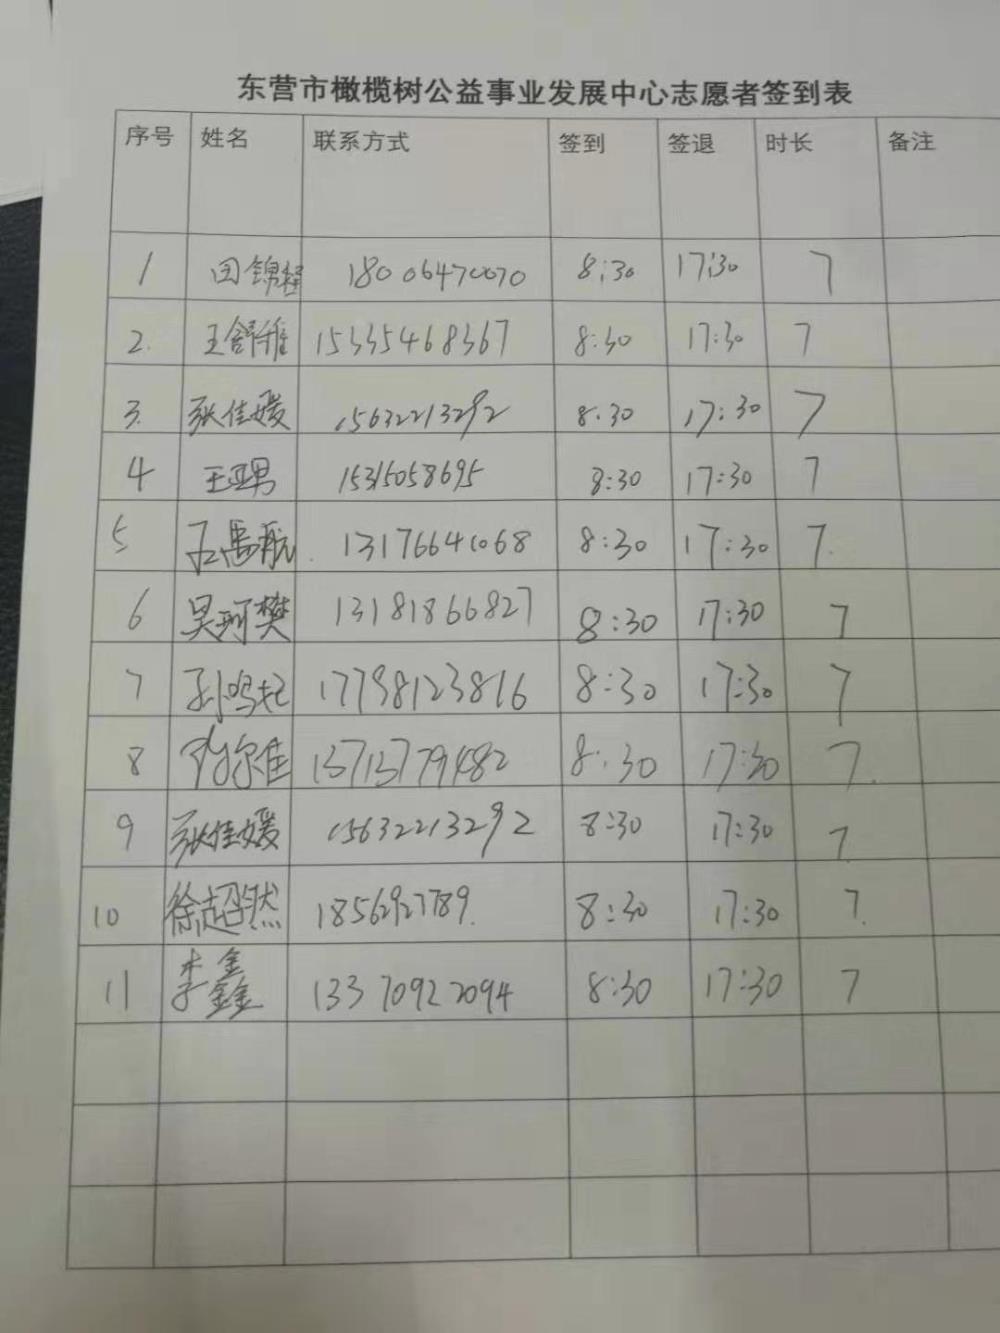 东营市橄榄树公益事业发展中心志愿者签到表
序号 姓名 联系方式 签到 签退 时长 备注
1 田锦程 18006470070 8:30 17:30 7
2. 王舒雅 15335468367 8:30 17:30 7
3. 张佳媛 15632213292 8:30 17:30 7
4 王亚男 15315058695 8:30 17:30 7
5 13176641068 8:30 17:30 7.
6 吴珂樊 13181866827 8:30 17:30 7
7 17798123816 8:30 17:30 7
8 8:30 17:30 7.
9 张佳媛 15632213292 8:30 17:30 7
10 徐超然 18562927789. 8:30 17:30 7.
11 李鑫 13370922094 8:30 17:30 7